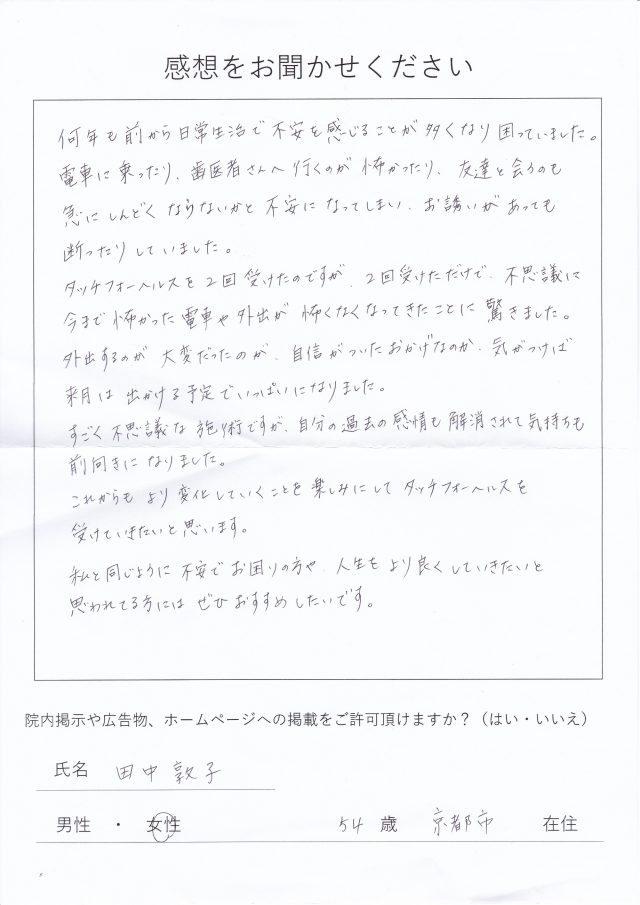 感想をお聞かせください
何年も前から日常生活で不安を感じることが多くなり困っていました。
電車に乗ったり、歯医者さんへ行くのが怖かったり、友達と会うのも
急にしんどくならないかと不安になってしまい、お誘いがあっても
断ったりしていました。
タッチフォーヘルスを2回受けたのですが、2回受けただけで、不思議に
今まで怖かった電車や外出が怖くなくなってきたことに驚きました。
外出するのが大変だったのが、自信がついたおかげなのか、気がつけば
来月は出かける予定でいっぱいになりました。
すごく不思議な施術ですが、自分の過去の感情も解消されて気持ちも
前向きになりました。
これからもより変化していくことを楽しみにしてタッチフォーヘルスを
受けていきたいと思います。
私と同じように不安でお困りの方や、人生をより良くしていきたいと
思われてる方にはぜひおすすめしたいです。
院内掲示や広告物、ホームページへの掲載をご許可頂けますか？（はい・いいえ）
氏名 田中敦子
男性 ・ 女性 54 歳 京都市 在住